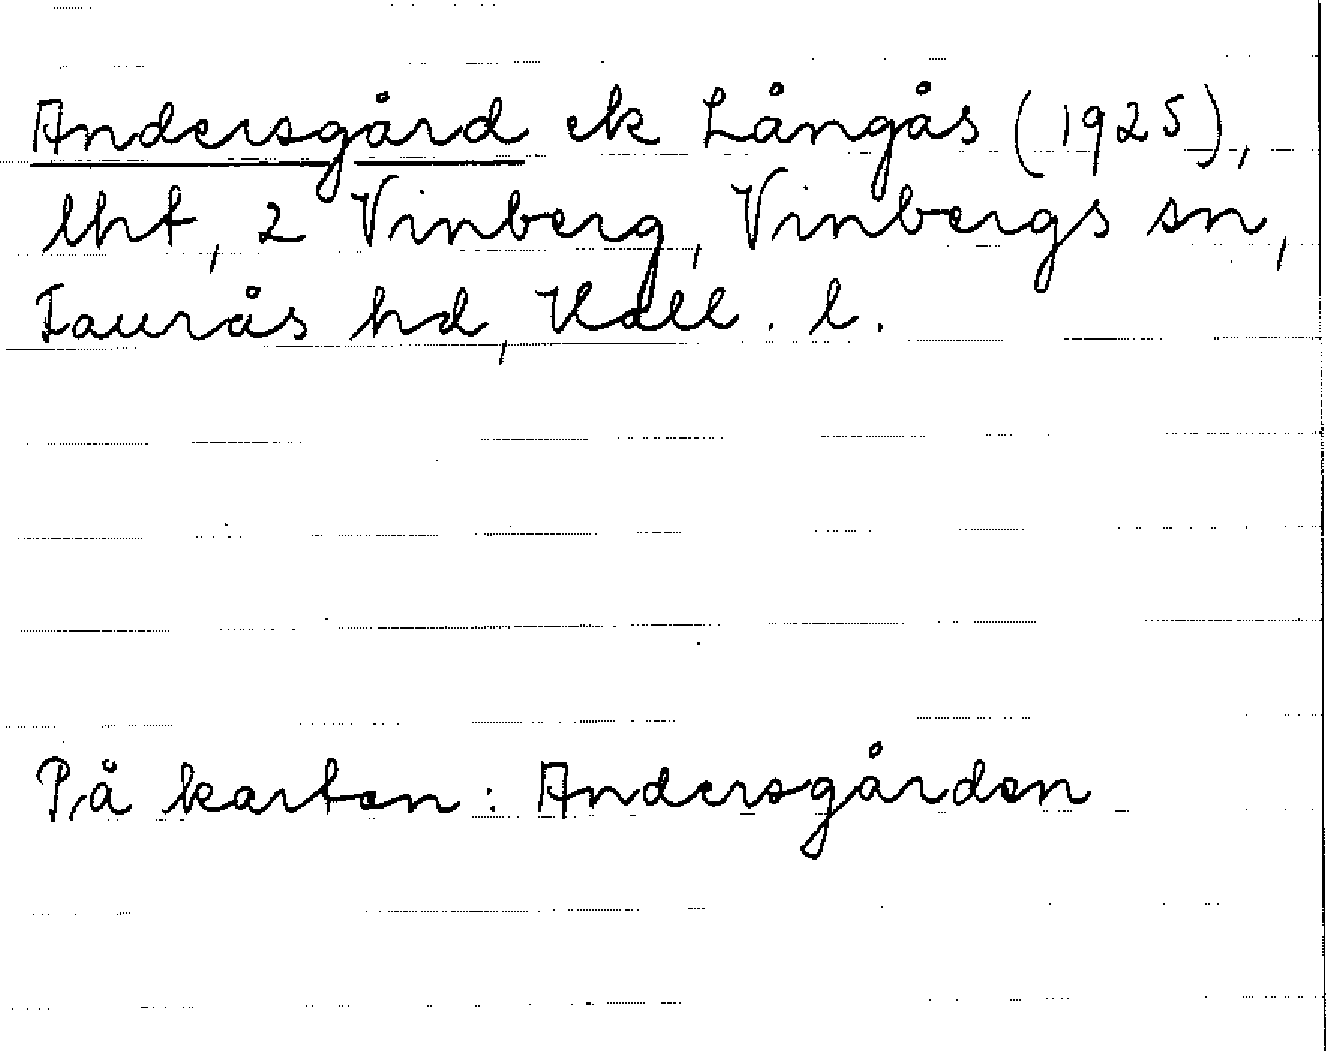 Andersgård ek Långås (1925),
lht, 2 Vinberg, Vinbergs sn,
Faurås hd, Hall. l.
På kartan: Andersgården